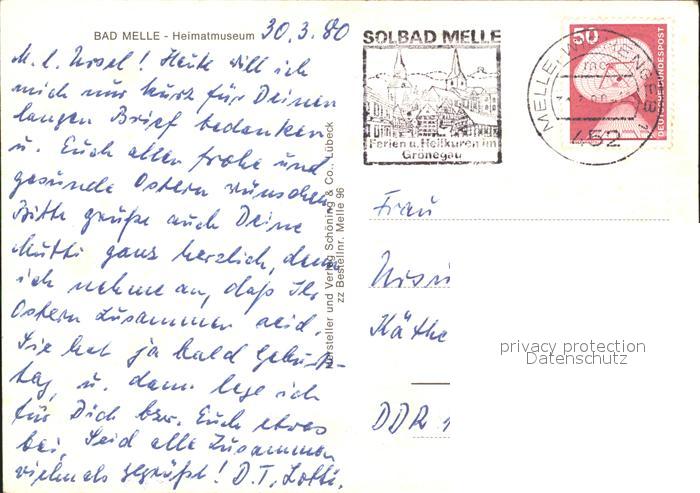 BAD MELLE - Heimatmuseum 30.3.80
M. l. Ursel! Heute will ich
mich nur kurz für Deinen
langen Brief bedanken
u. Euch allen frohe und
gesunde Ostern wünschen
Bitte grüße auch Deine
Mutti ganz herzlich, denn
ich nehme an, daß Ihr
Ostern zusammen seid.
Sie hat ja bald Geburts-
tag, u. dann lege ich
für Dich bzw. Euch etwas
bei. Seid alle zusammen
vielmals gegrüßt! D. T. Lotti.
Hersteller und Verlag Schöning & Co., Lübeck
zz Bestellnr. Melle 96
SOLBAD MELLE
Ferien u. Heilkuren im
Grönegau
MELLE, 1
452
50
DEUTSCHE BUNDESPOST
Frau
Käthe
DDR
privacy protection
Datenschutz